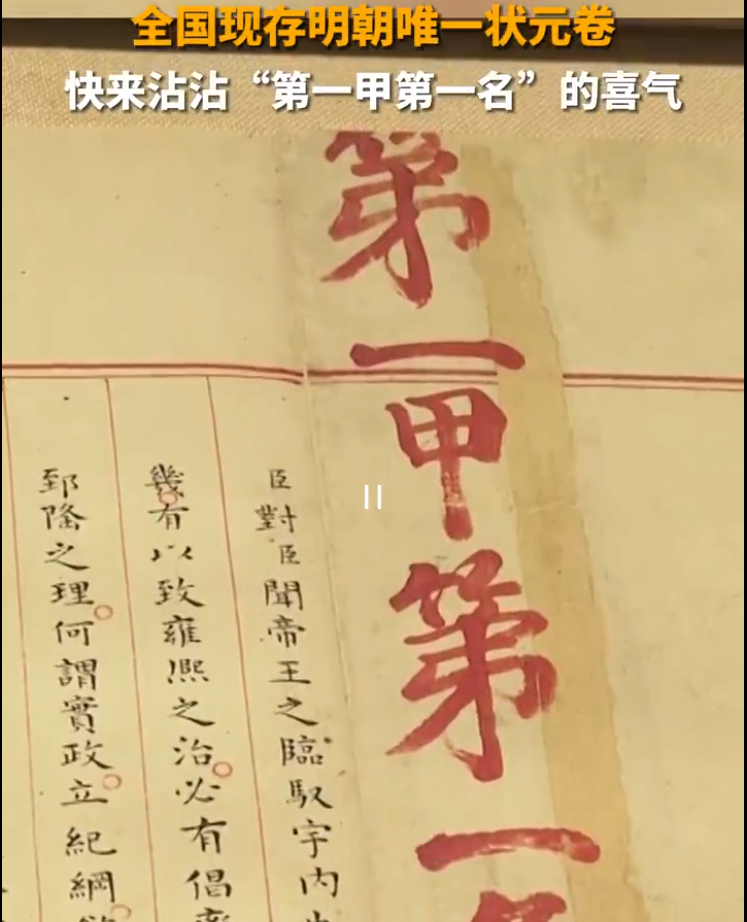 全国现存明朝唯一状元卷
快来沾沾“第一甲第一名”的喜气
第一甲第一
臣對臣聞帝王之臨馭宇内
幾有以致雍熙之治必有倡
郅隆之理何謂實政立紀綱